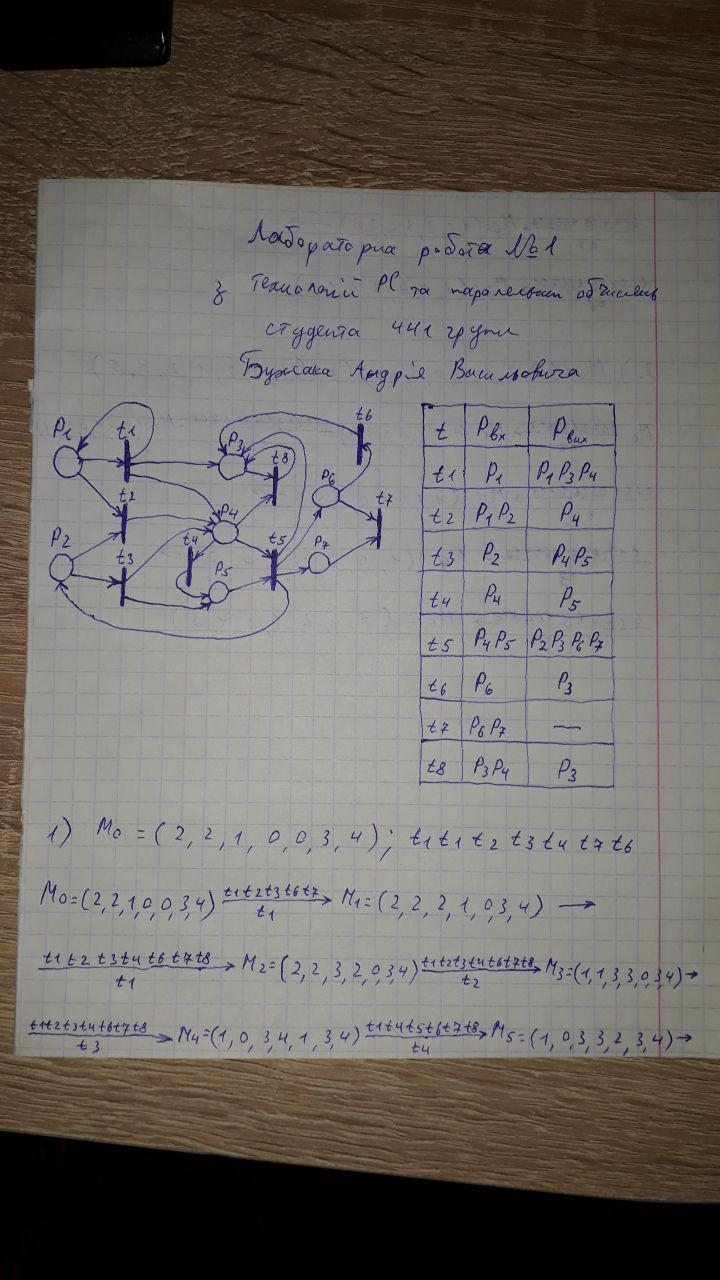 Лабораторна робота №1
з Технологій РС та паралельних обчислень
студента 441 групи
Бужака Андрія Васильовича
P1 t1 P3 t8 t6 P6 t7 t2 P4 t5 P2 t3 t4 P5 P7
t Pвх Pвих
t1 P1 P1P3P4
t2 P1P2 P4
t3 P2 P4P5
t4 P4 P5
t5 P4P5 P2P3P6P7
t6 P6 P3
t7 P6P7 —
t8 P3P4 P3
1) M0 = (2, 2, 1, 0, 0, 3, 4); t1 t1 t2 t3 t4 t7 t6
M0=(2,2,1,0,0,3,4) t1t2t3t6t7/t1 → M1=(2,2,2,1,0,3,4) →
t1t2t3t4t6t7t8/t1 → M2=(2,2,3,2,0,3,4) t1t2t3t4t6t7t8/t2 → M3=(1,1,3,3,0,3,4)→
t1t2t3t4t6t7t8/t3 → M4=(1,0,3,4,1,3,4) t1t4t5t6t7t8/t4 → M5=(1,0,3,3,2,3,4)→